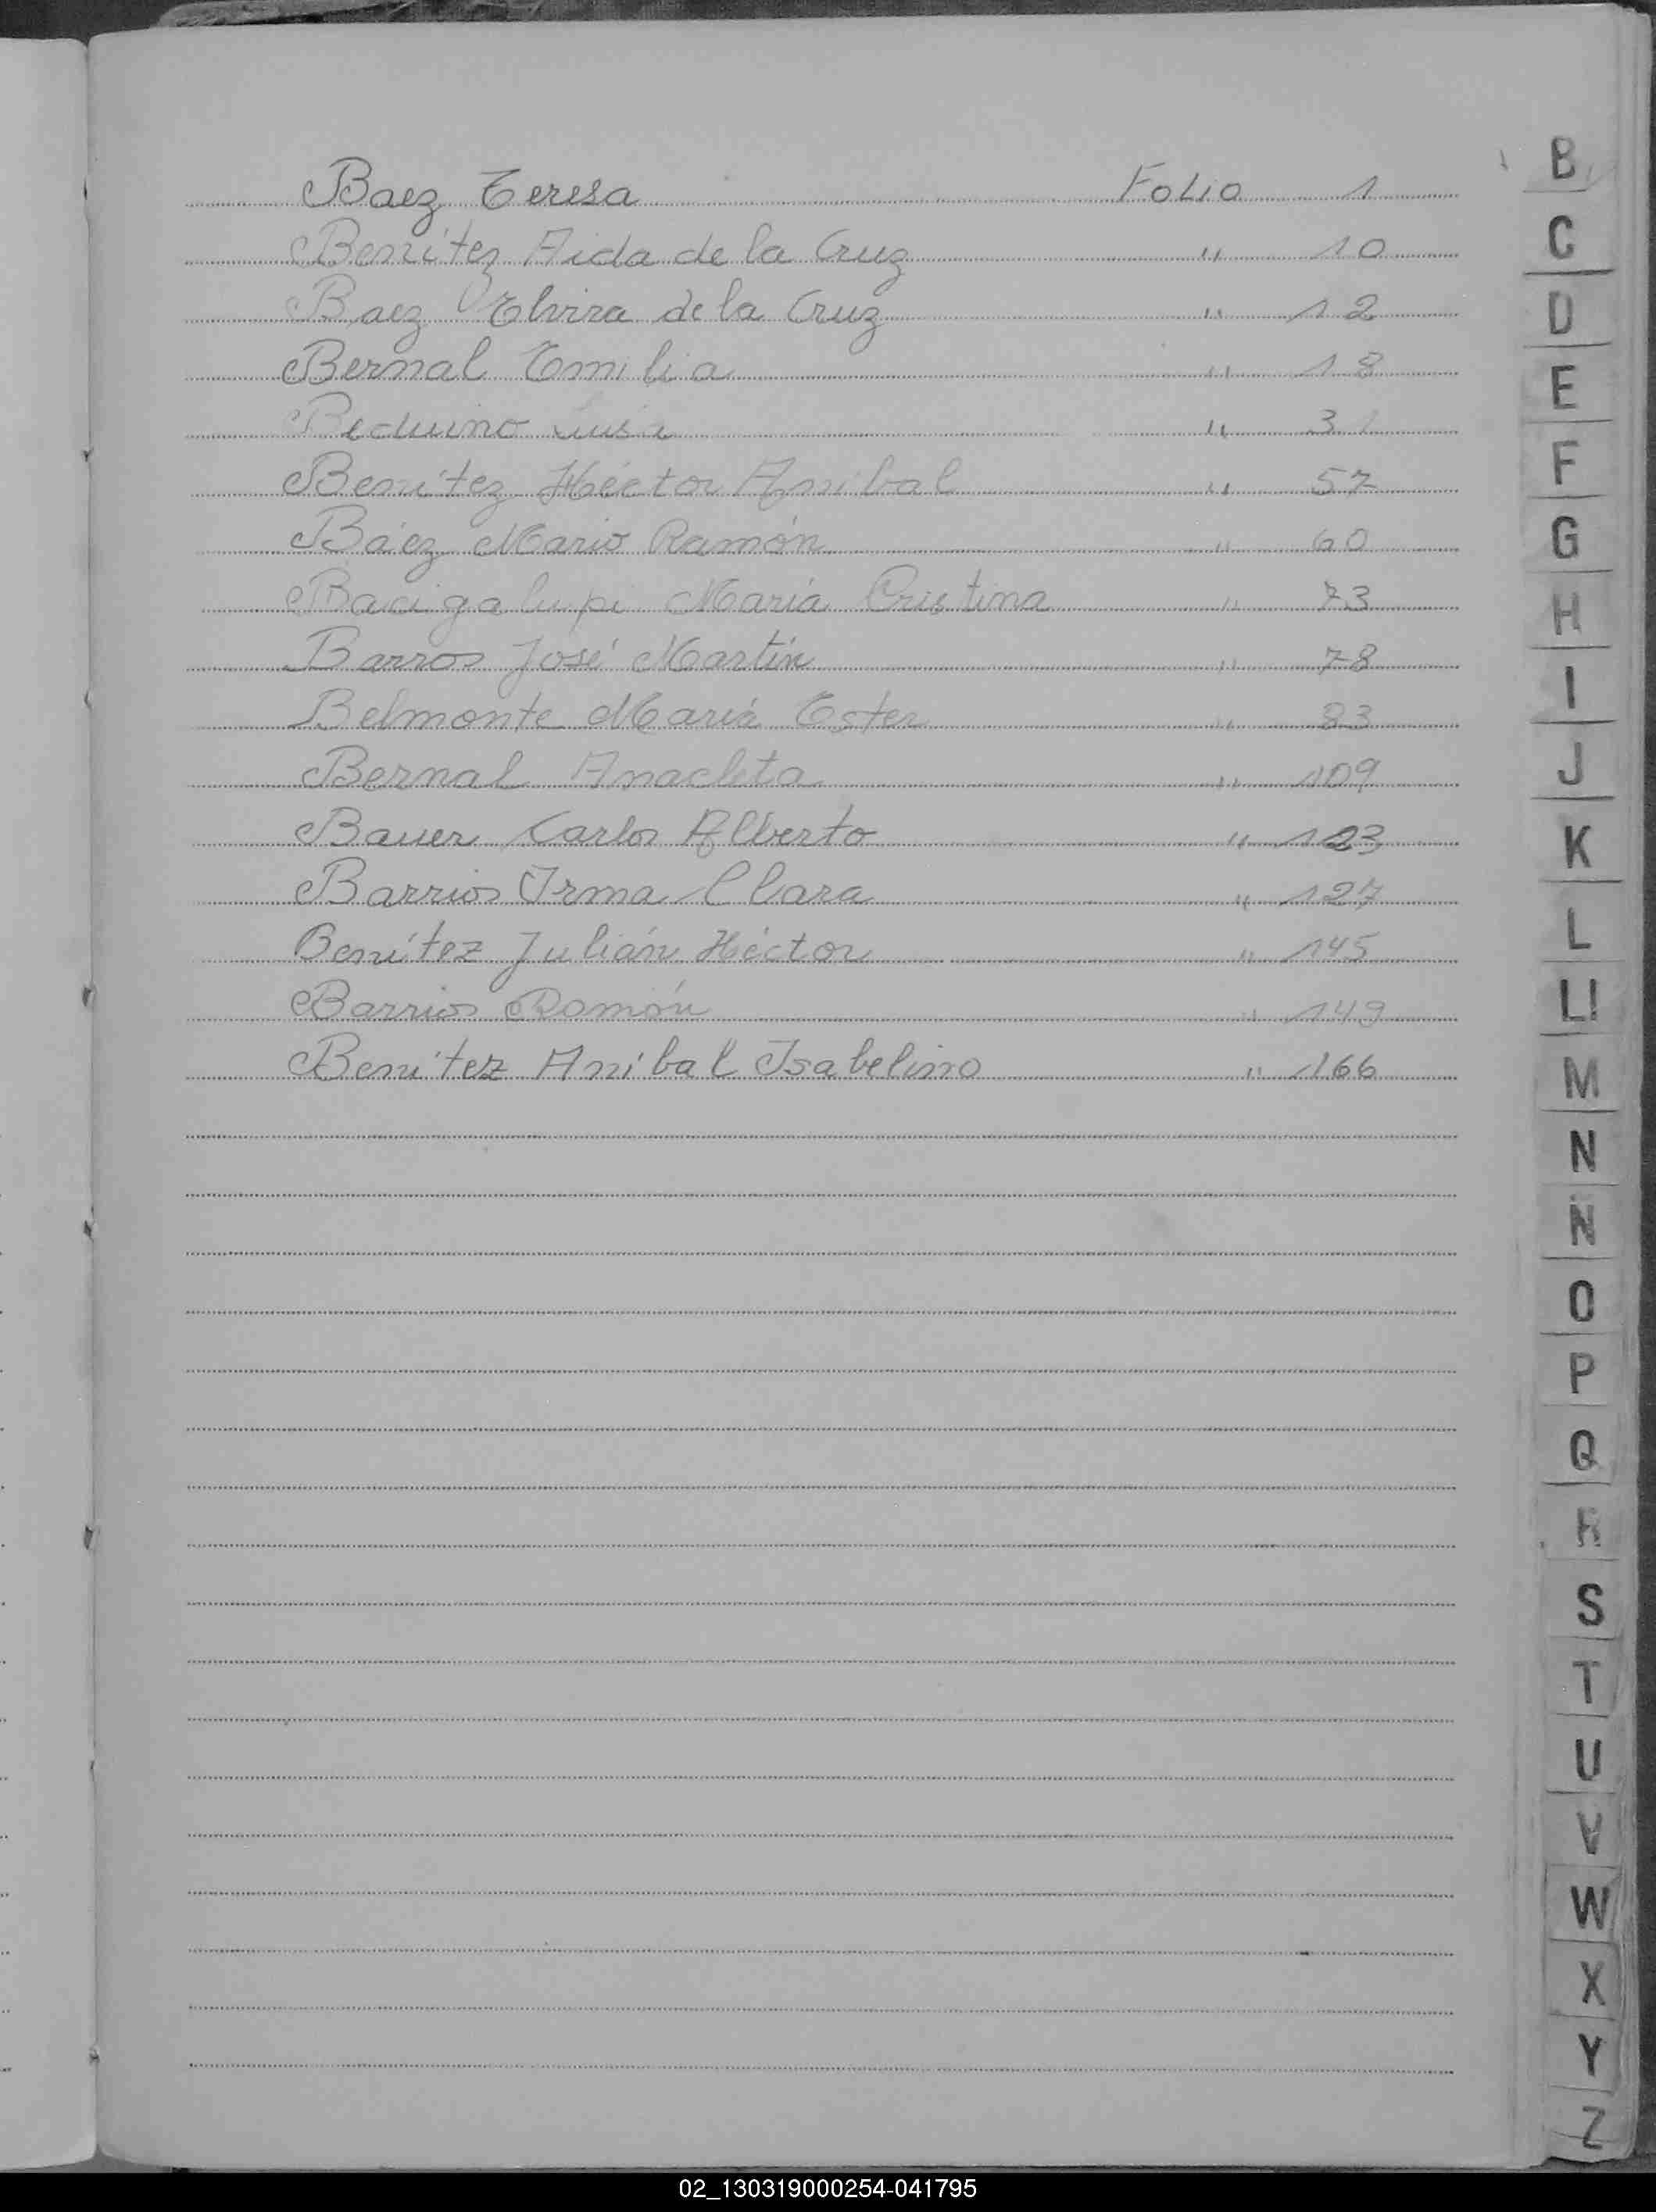 Baez Teresa Folio 1
Benítez Aida de la Cruz " 10
Baez Elvira de la Cruz " 12
Bernal Emilia " 18
Beduino Luisa " 31
Benítez Héctor Anibal " 57
Báez Mario Ramón " 60
Bacigalupi María Cristina " 73
Barros José Martín " 78
Belmonte María Ester " 83
Bernal Anacleta " 109
Bauer Carlos Alberto " 123
Barrios Irma Clara " 127
Benítez Julián Héctor " 145
Barrios Ramón " 149
Benítez Anibal Isabelino " 166
B
C
D
E
F
G
H
I
J
K
L
Ll
M
N
Ñ
O
P
Q
R
S
T
U
V
W
X
Y
Z
02_130319000254-041795